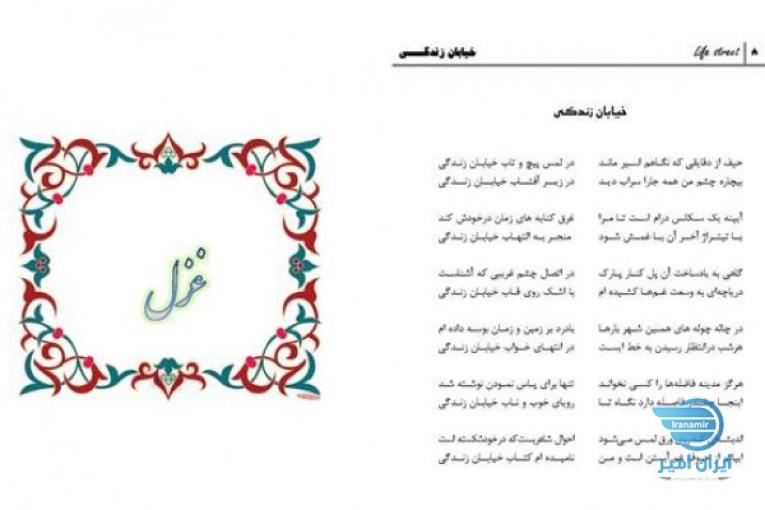 خیابان زندگی
Life street
۸
خیابان زندگی
حیف از دقایقی که نگاهم اسیر ماند در لمس پیچ و تاب خیابان زندگی
بیچاره چشم من همه جارا سراب دید در زیر آفتاب خیابان زندگی
آیینه یک سکانس درام است تا مرا غرق کنایه های زمان درخودش کند
با تیتراژ آخر آن با غمش شود منجر به التهاب خیابان زندگی
گاهی به یادساخت آن پل کنار پارک در اتصال چشم غریبی که آشناست
دریاچه‌ای به وسعت غم‌ها کشیده ام با اشک روی قاب خیابان زندگی
در چاله چوله های همین شهر بارها بادرد بر زمین و زمان بوسه داده ام
هرشب درانتظار رسیدن به خط ایست در انتهای خواب خیابان زندگی
هرگز مدینه فاضله‌ها را کسی نخواند تنها برای پاس نمودن نوشته شد
اینجا فاصله دارد نگاه تا رویای خوب و ناب خیابان زندگی
ورق لمس می‌شود احوال شاعریست‌که درخودشکسته است
غم آبستن است و من نامیده ام کتاب خیابان زندگی
غزل
Iranamir
ایران امیر